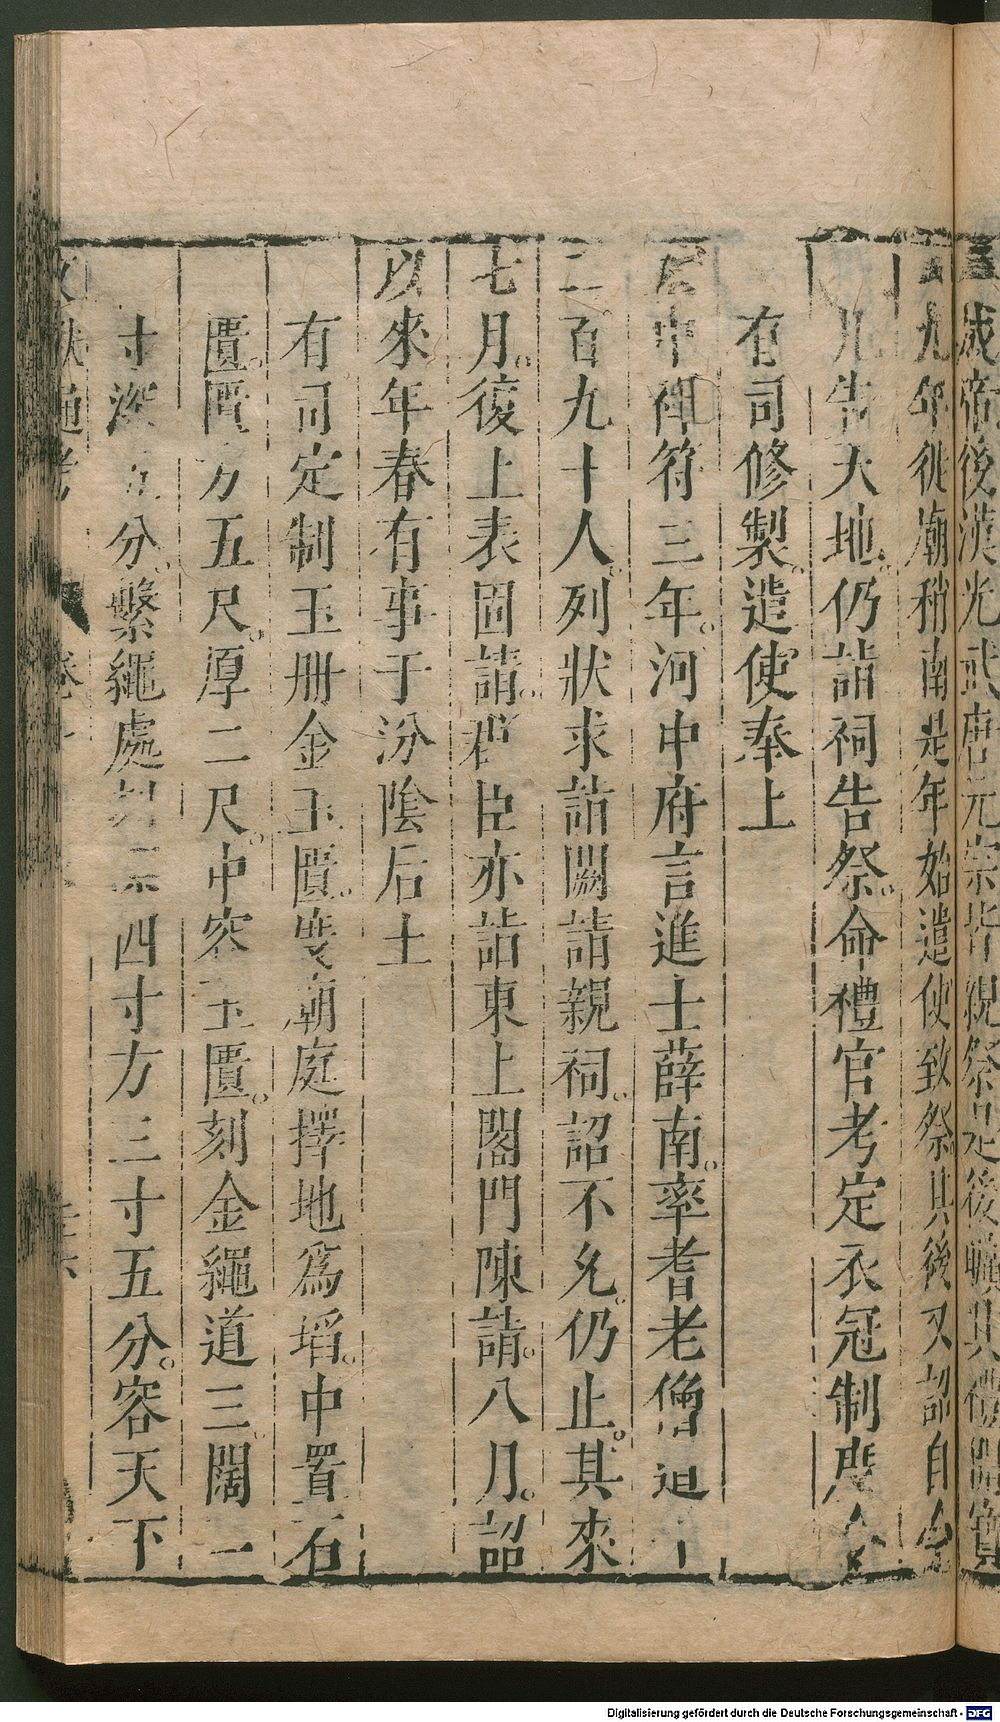 成帝後漢光武唐元宗皆親祭是後曠其禮開寶
九年徙廟稍南是年始遣使致祭其後又詔自今
凡告天地仍詣祠告祭命禮官考定衣冠制度令
有司修製遣使奉上
中祥符三年河中府言進士薛南率耆老僧道千
二百九十人列狀求詣闕請親祠詔不允仍止其來
七月復上表固請群臣亦詣東上閤門陳請八月詔
以來年春有事于汾陰后土
有司定制玉册金玉匱雙廟庭擇地爲埳中置石
匱匱方五尺厚二尺中容玉匱刻金繩道三闊一
寸深五分繫繩處刻深四寸方三寸五分容天下
文獻通考
Digitalisierung gefördert durch die Deutsche Forschungsgemeinschaft - DFG